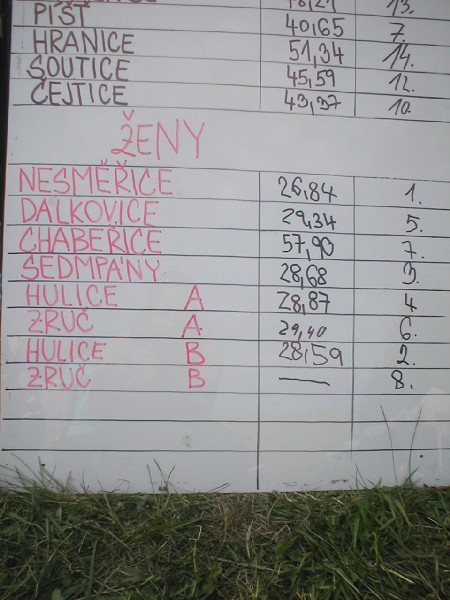 13.
PÍŠŤ 40,65 7.
HRANICE 51,34 14.
SOUTICE 45,59 12.
ČEJTICE 43,37 10.
ŽENY
NESMĚŘICE 26,84 1.
DALKOVICE 29,34 5.
CHABEŘICE 57,90 7.
SEDMPÁNY 28,68 3.
HULICE A 28,87 4
ZRUČ A 29,40 6.
HULICE B 28,59 2.
ZRUČ B — 8.